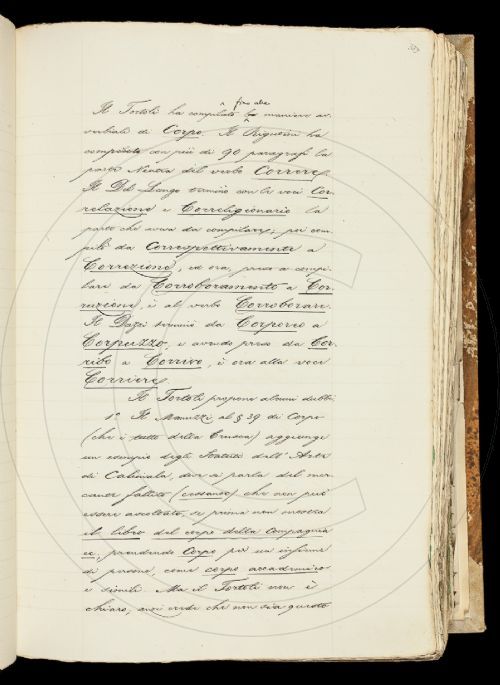 Il Tortoli ha compilato fino alle maniere av-
verbiali di Corpo. Il Rigutini ha
compilato con più di 90 paragrafi la
parte Neutra del verbo Correre.
Il Del-Lungo terminò con le voci Cor-
relazione e Correligionario la
parte che aveva da compilare; poi com-
pilò da Correspettivamente a
Correzione, ed ora, preso a compi-
lare da Corroboramento a Cor-
rezione, è al verbo Corroborare.
Il Dazzi terminò da Corporeo a
Corpuzzo, e avendo preso da Cor-
ribo a Corrivo, è ora alla voce
Corriere.
Il Tortoli propone alcuni dubbi.
1º Il Manuzzi al § 39 di Corpo
(che è tutto della Crusca) aggiunge
un esempio degli Statuti dell'Arte
di Calimala, dove si parla del mer-
cante fallito (cessando) che non può
essere ascoltato, se prima non mostra
il libro del corpo della Compagnia
ec., prendendo Corpo per un insieme
di persone, come corpo accademico
e simili. Ma il Tortoli non è
chiaro, anzi crede che non sia questo